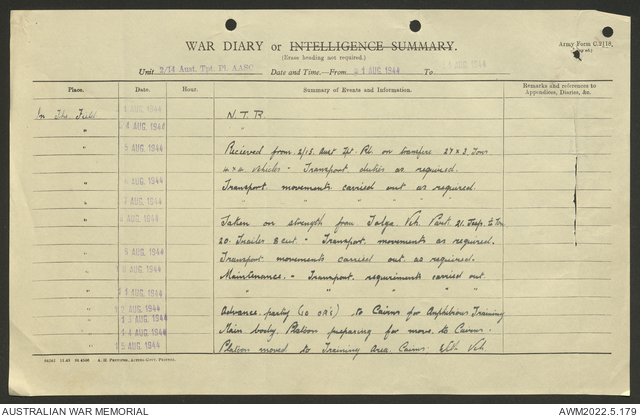 WAR DIARY or INTELLIGENCE SUMMARY.
Army Form C.2118.
(Erase heading not required.)
Unit 2/14 Aust. Tpt. Pl. AASC Date and Time.—From 1 AUG 1944 To AUG 1944
Place. Date. Hour. Summary of Events and Information. Remarks and references to Appendices, Diaries, &c.
In The Field AUG. 1944 N.T.R.
" 4 AUG. 1944 "
" 5 AUG. 1944 Recieved from 2/15 Aust Tpt. Pl. on transfere 27 x 3 Ton
4 x 4 Vehicles - Transport duties as required.
" AUG. 1944 Transport movements carried out as required.
" AUG. 1944 " " " " " "
" AUG. 1944 Taken on strength from Tolga. Veh. Park. 21. Jeep. Ton
20. Trailer 8 cwt. - Transport movements as required.
" AUG. 1944 Transport movements carried out as required.
" AUG. 1944 Maintenance. - Transport. requirments carried out.
" 1 1 AUG. 1944 " " " "
" 1 2 AUG. 1944 Advance. party (10 OR's) to Cairns for Amphibious Training
" 1 3 AUG. 1944 Main body. Platoon preparing for move. to Cairns.
" 1 4 AUG. 1944
" 1 5 AUG. 1944 Platoon moved to Training Area. Cairns. Veh.
A. H. Pettifer, Acting Govt. Printer.
AUSTRALIAN WAR MEMORIAL
AWM2022.5.179